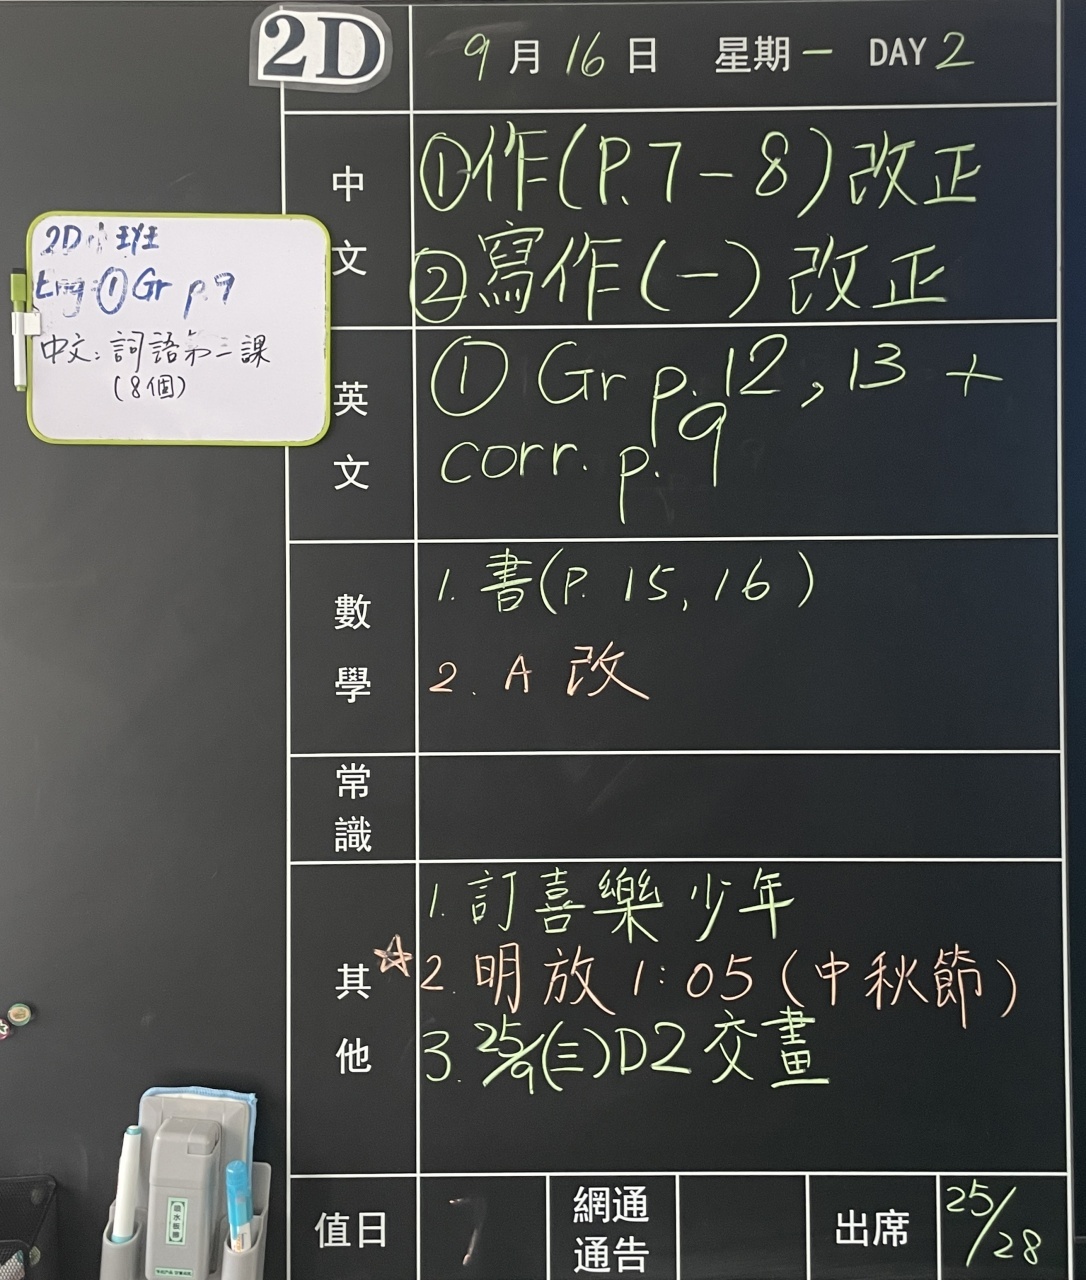 2D
9月16日 星期一 DAY 2
中文
①作(P.7-8)改正
②寫作(一)改正
2D小班
Eng①Gr p.9
中文:詞語第二課
(8個)
英文
① Gr p.12,13 +
corr. p.9
數學
1. 書(P. 15, 16)
2. A 改
常識
其他
1. 訂喜樂少年
☆2. 明放 1:05 (中秋節)
3. 25/9(三)D2交畫
值日 7 網通通告 出席 25/28